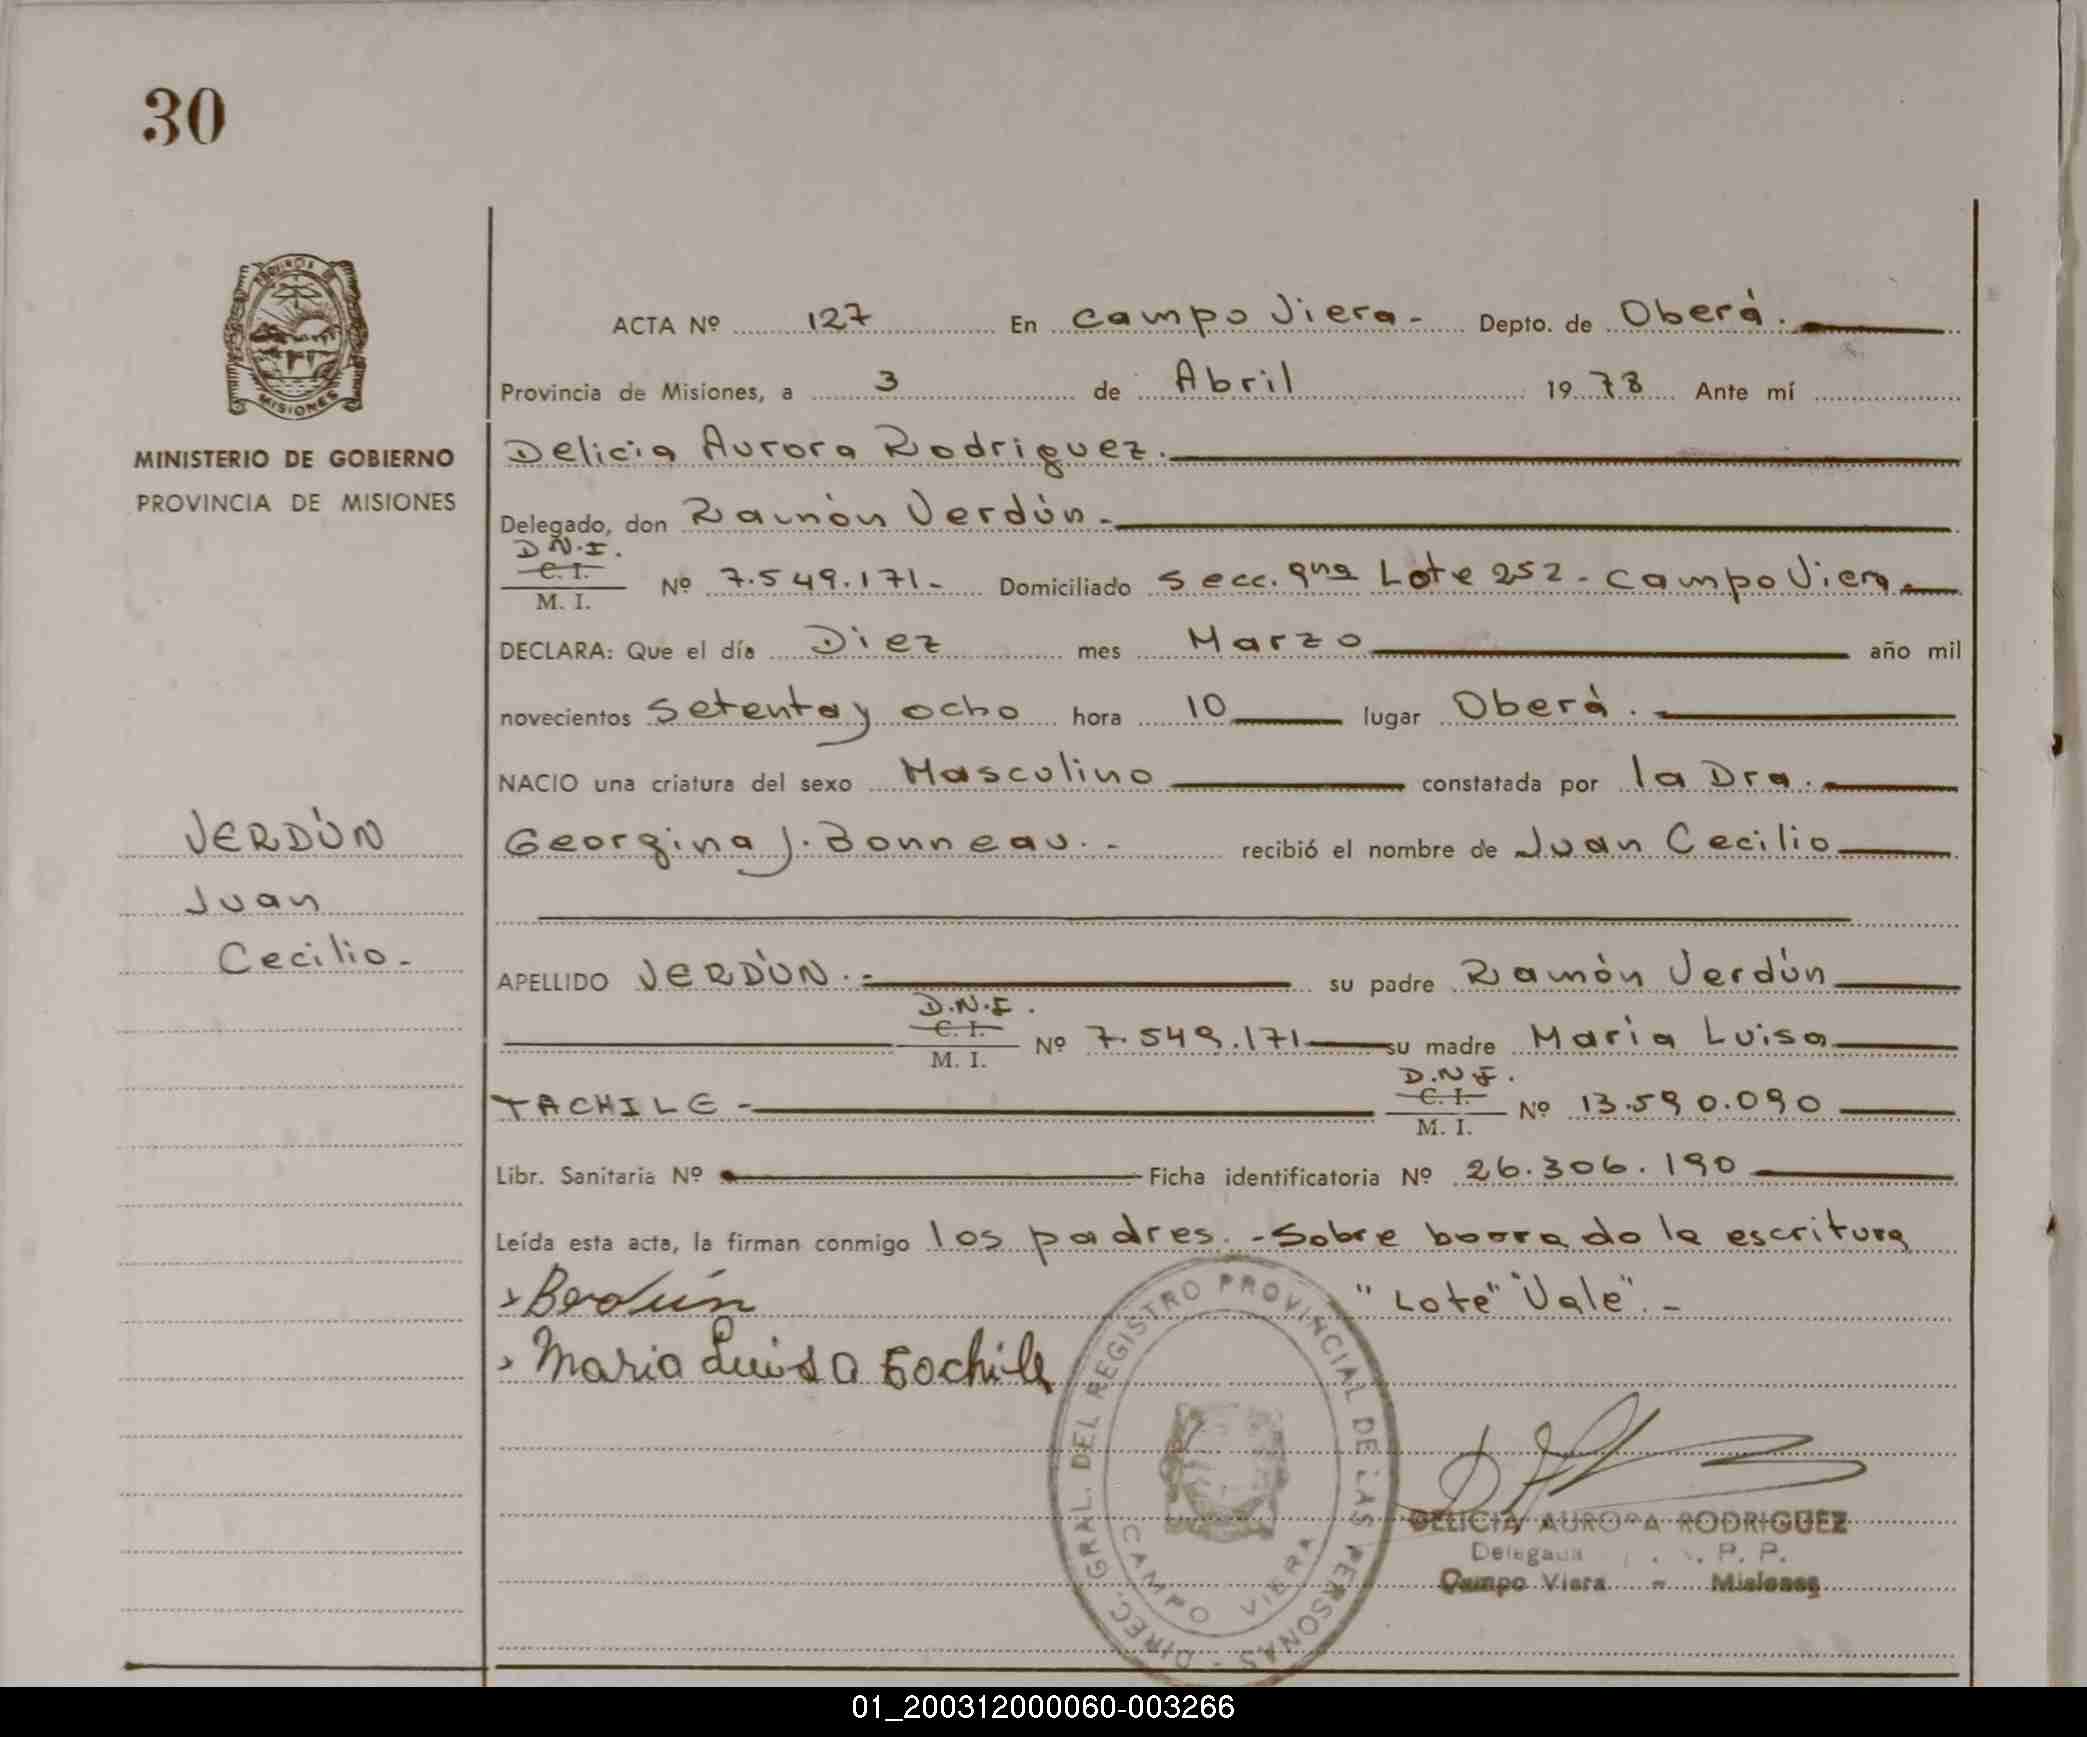 30
PROVINCIA DE
MISIONES
MINISTERIO DE GOBIERNO
PROVINCIA DE MISIONES
VERDÚN
Juan
Cecilio.-
ACTA Nº 127 En Campo Viera.- Depto. de Oberá.
Provincia de Misiones, a 3 de Abril 1978 Ante mí
Delicia Aurora Rodriguez.
Delegado, don Ramón Verdún.-
D.N.I.
C. I.
M. I.
Nº 7.549.171.- Domiciliado Secc. 9na Lote 252.- Campo Viera
DECLARA: Que el día Diez mes Marzo año mil
novecientos setenta y ocho hora 10 lugar Oberá.
NACIO una criatura del sexo Masculino constatada por la Dra.
Georgina J. Bonneau.- recibió el nombre de Juan Cecilio
APELLIDO VERDÚN.- su padre Ramón Verdún
D.N.I.
C. I.
M. I.
Nº 7.549.171 su madre Maria Luisa
D.N.I.
TACHILE - C. I. Nº 13.590.090
M. I.
Libr. Sanitaria Nº Ficha identificatoria Nº 26.306.190
Leída esta acta, la firman conmigo los padres.- Sobre borrado la escritura
Berdún "Lote" "Vale".-
Maria Luisa Tochile
DIREC. GRAL. DEL REGISTRO PROVINCIAL DE LAS PERSONAS -
CAMPO VIERA
DELICIA AURORA RODRIGUEZ
Delegada P. P.
Campo Viera - Misiones
01_200312000060-003266